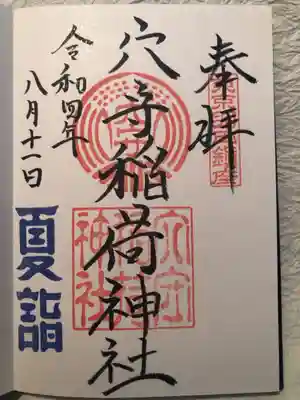 奉拝
穴守稲荷神社
穴守
稲荷
神社
令和四年
八月十一日
夏詣